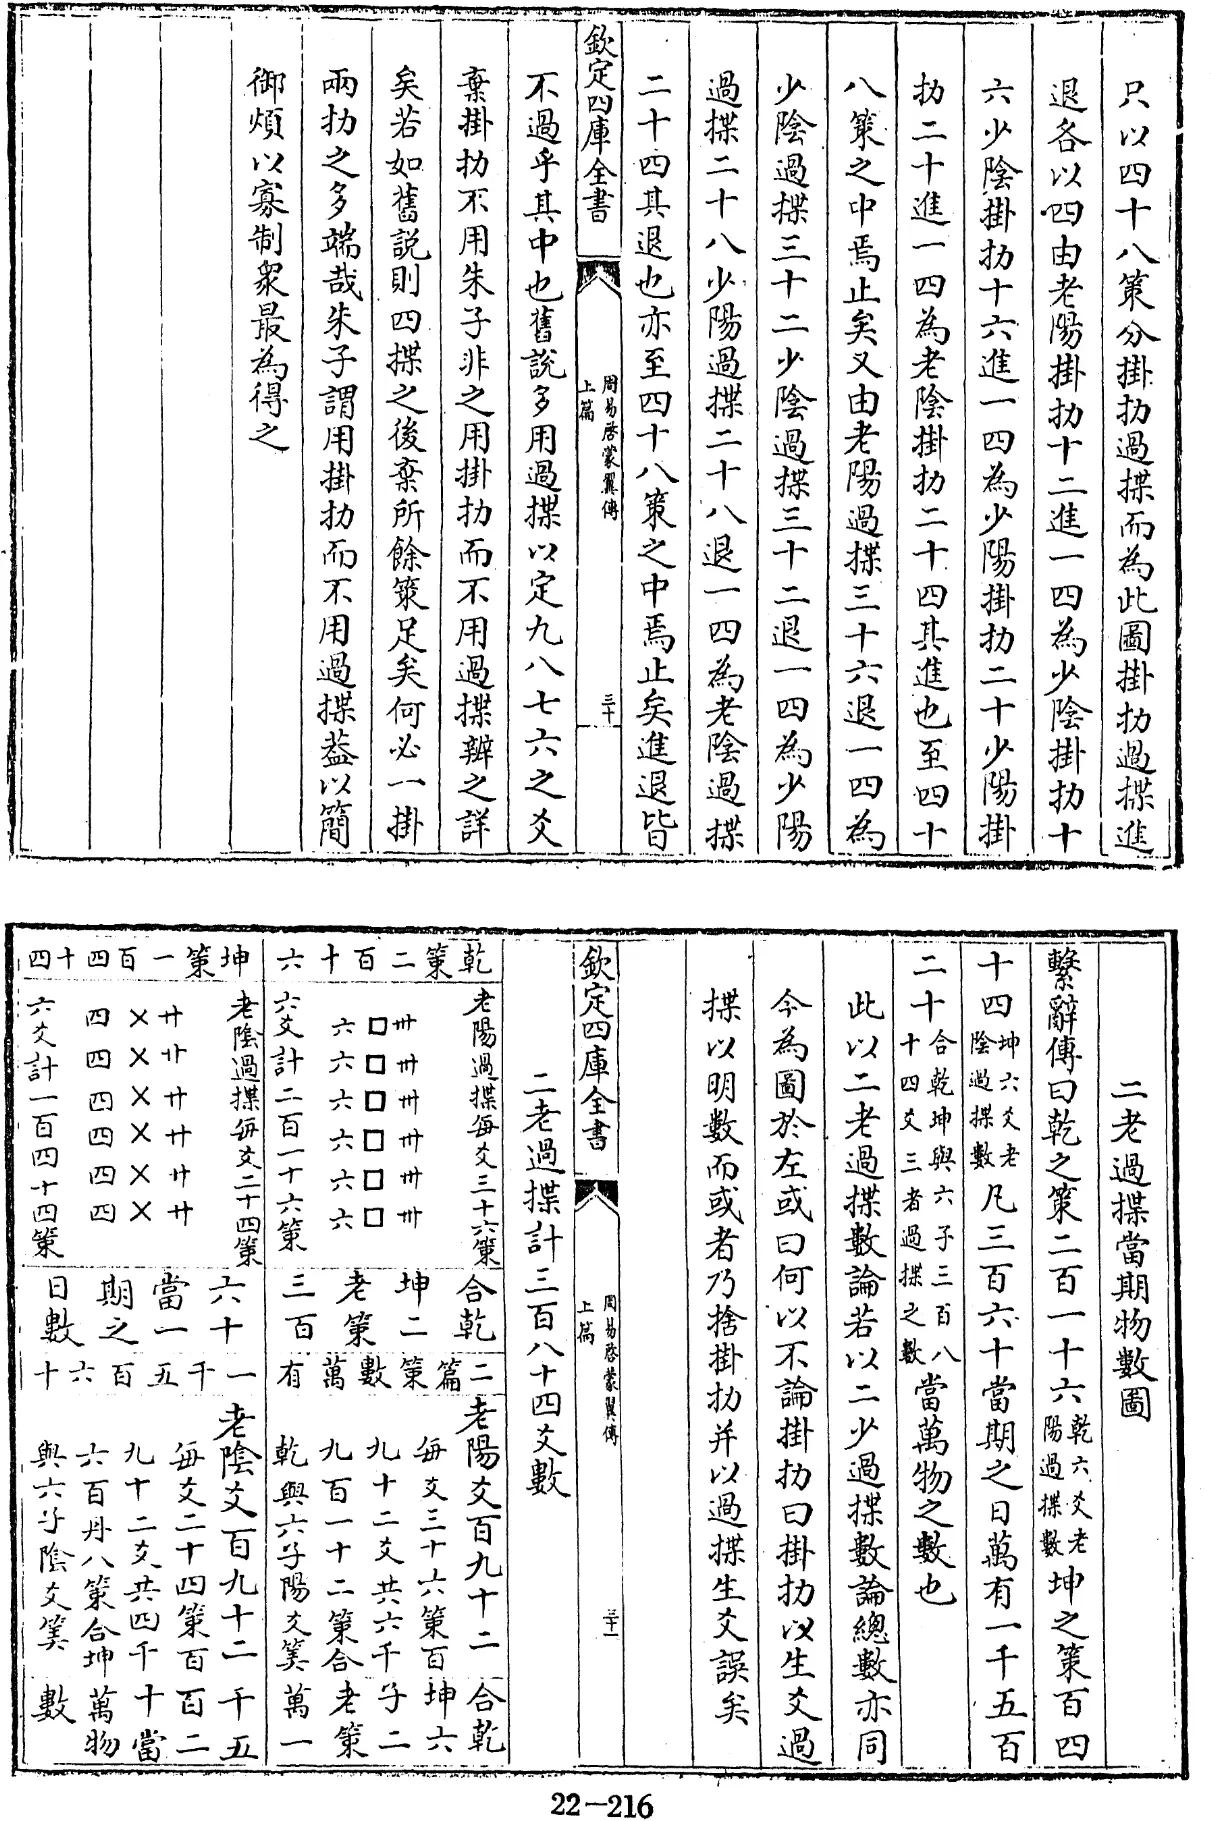 只以四十八策分掛扐過揲而為此圖掛扐過揲進
退各以四由老陽掛扐十二進一四為少陰掛扐十
六少陰掛扐十六進一四為少陽掛扐二十少陽掛
扐二十進一四為老陰掛扐二十四其進也至四十
八策之中焉止矣又由老陽過揲三十六退一四為
少陰過揲三十二少陰過揲三十二退一四為少陽
過揲二十八少陽過揲二十八退一四為老陰過揲
二十四其退也亦至四十八策之中焉止矣進退皆
欽定四庫全書
周易啓蒙翼傳
上篇
三十
不過乎其中也舊説多用過揲以定九八七六之爻
棄掛扐不用朱子非之用掛扐而不用過揲辯之詳
矣若如舊説則四揲之後棄所餘策足矣何必一掛
兩扐之多端哉朱子謂用掛扐而不用過揲葢以簡
御煩以寡制衆最為得之
二老過揲當期物數圖
繫辭傳曰乾之策二百一十六乾六爻老陽過揲數坤之策百四
十四坤六爻老陰過揲數凡三百六十當期之日萬有一千五百
二十合乾坤與六子三百八十四爻三者過揲之數當萬物之數也
此以二老過揲數論若以二少過揲數論總數亦同
今為圖於左或曰何以不論掛扐曰掛扐以生爻過
揲以明數而或者乃捨掛扐并以過揲生爻誤矣
欽定四庫全書
周易啓蒙翼傳
上篇
三十一
二老過揲計三百八十四爻數
乾策二百十六
老陽過揲每爻三十六策
卅□六
卅□六
卅□六
卅□六
卅□六
卅□六
六爻計二百一十六策
坤策一百四十四
老陰過揲每爻二十四策
廿×四
廿×四
廿×四
廿×四
廿×四
廿×四
六爻計一百四十四策
合乾坤二老策三百六十當一期之日數
二篇策數萬有一千五百六十
老陽爻百九十二
每爻三十六策百
九十二爻共六千
九百一十二策合
乾與六子陽爻筭
老陰爻百九十二
每爻二十四策百
九十二爻共四千
六百丹八策合坤
與六子陰爻筭
合乾坤六子二老策萬一千五百二十當萬物數
22-216